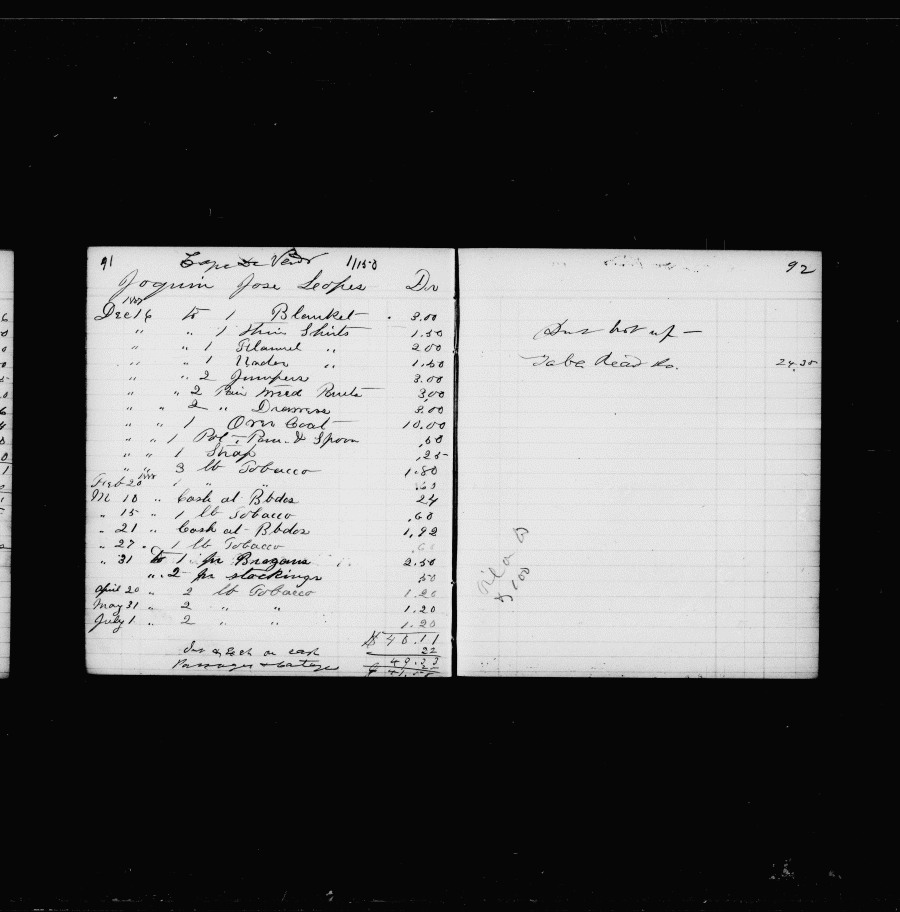 91 Cape de Verde 1/150
Joquim Jose Leopes Dr
1887
Dec 16 to 1 Blanket 3.00
" " 1 Thin Shirts 1.50
" " 1 Flannel " 2.00
" " 1 Under " 1.50
" " 2 Jumpers 3.00
" " 2 Pair Pants 3.00
" " 2 " Drawers 3.00
" " 1 Over Coat 10.00
" " 1 Pot, Pan & Spoon .60
" " 1 Strap .25
" " 3 lb Tobacco 1.80
Feb 20 1 " " .60
M 10 " Cash at Bbdos 24
" 15 " 1 lb Tobacco .60
" 21 " Cash at Bbdos 1.92
" 27 " 1 lb Tobacco .60
" 31 to 1 pr Brogans 2.50
" 2 pr stockings 50
April 20 " 2 lb Tobacco 1.20
May 31 " 2 " " 1.20
July 1 " 2 " " 1.20
$ 40.11
on cash 22
92
not up —
24.35
$100